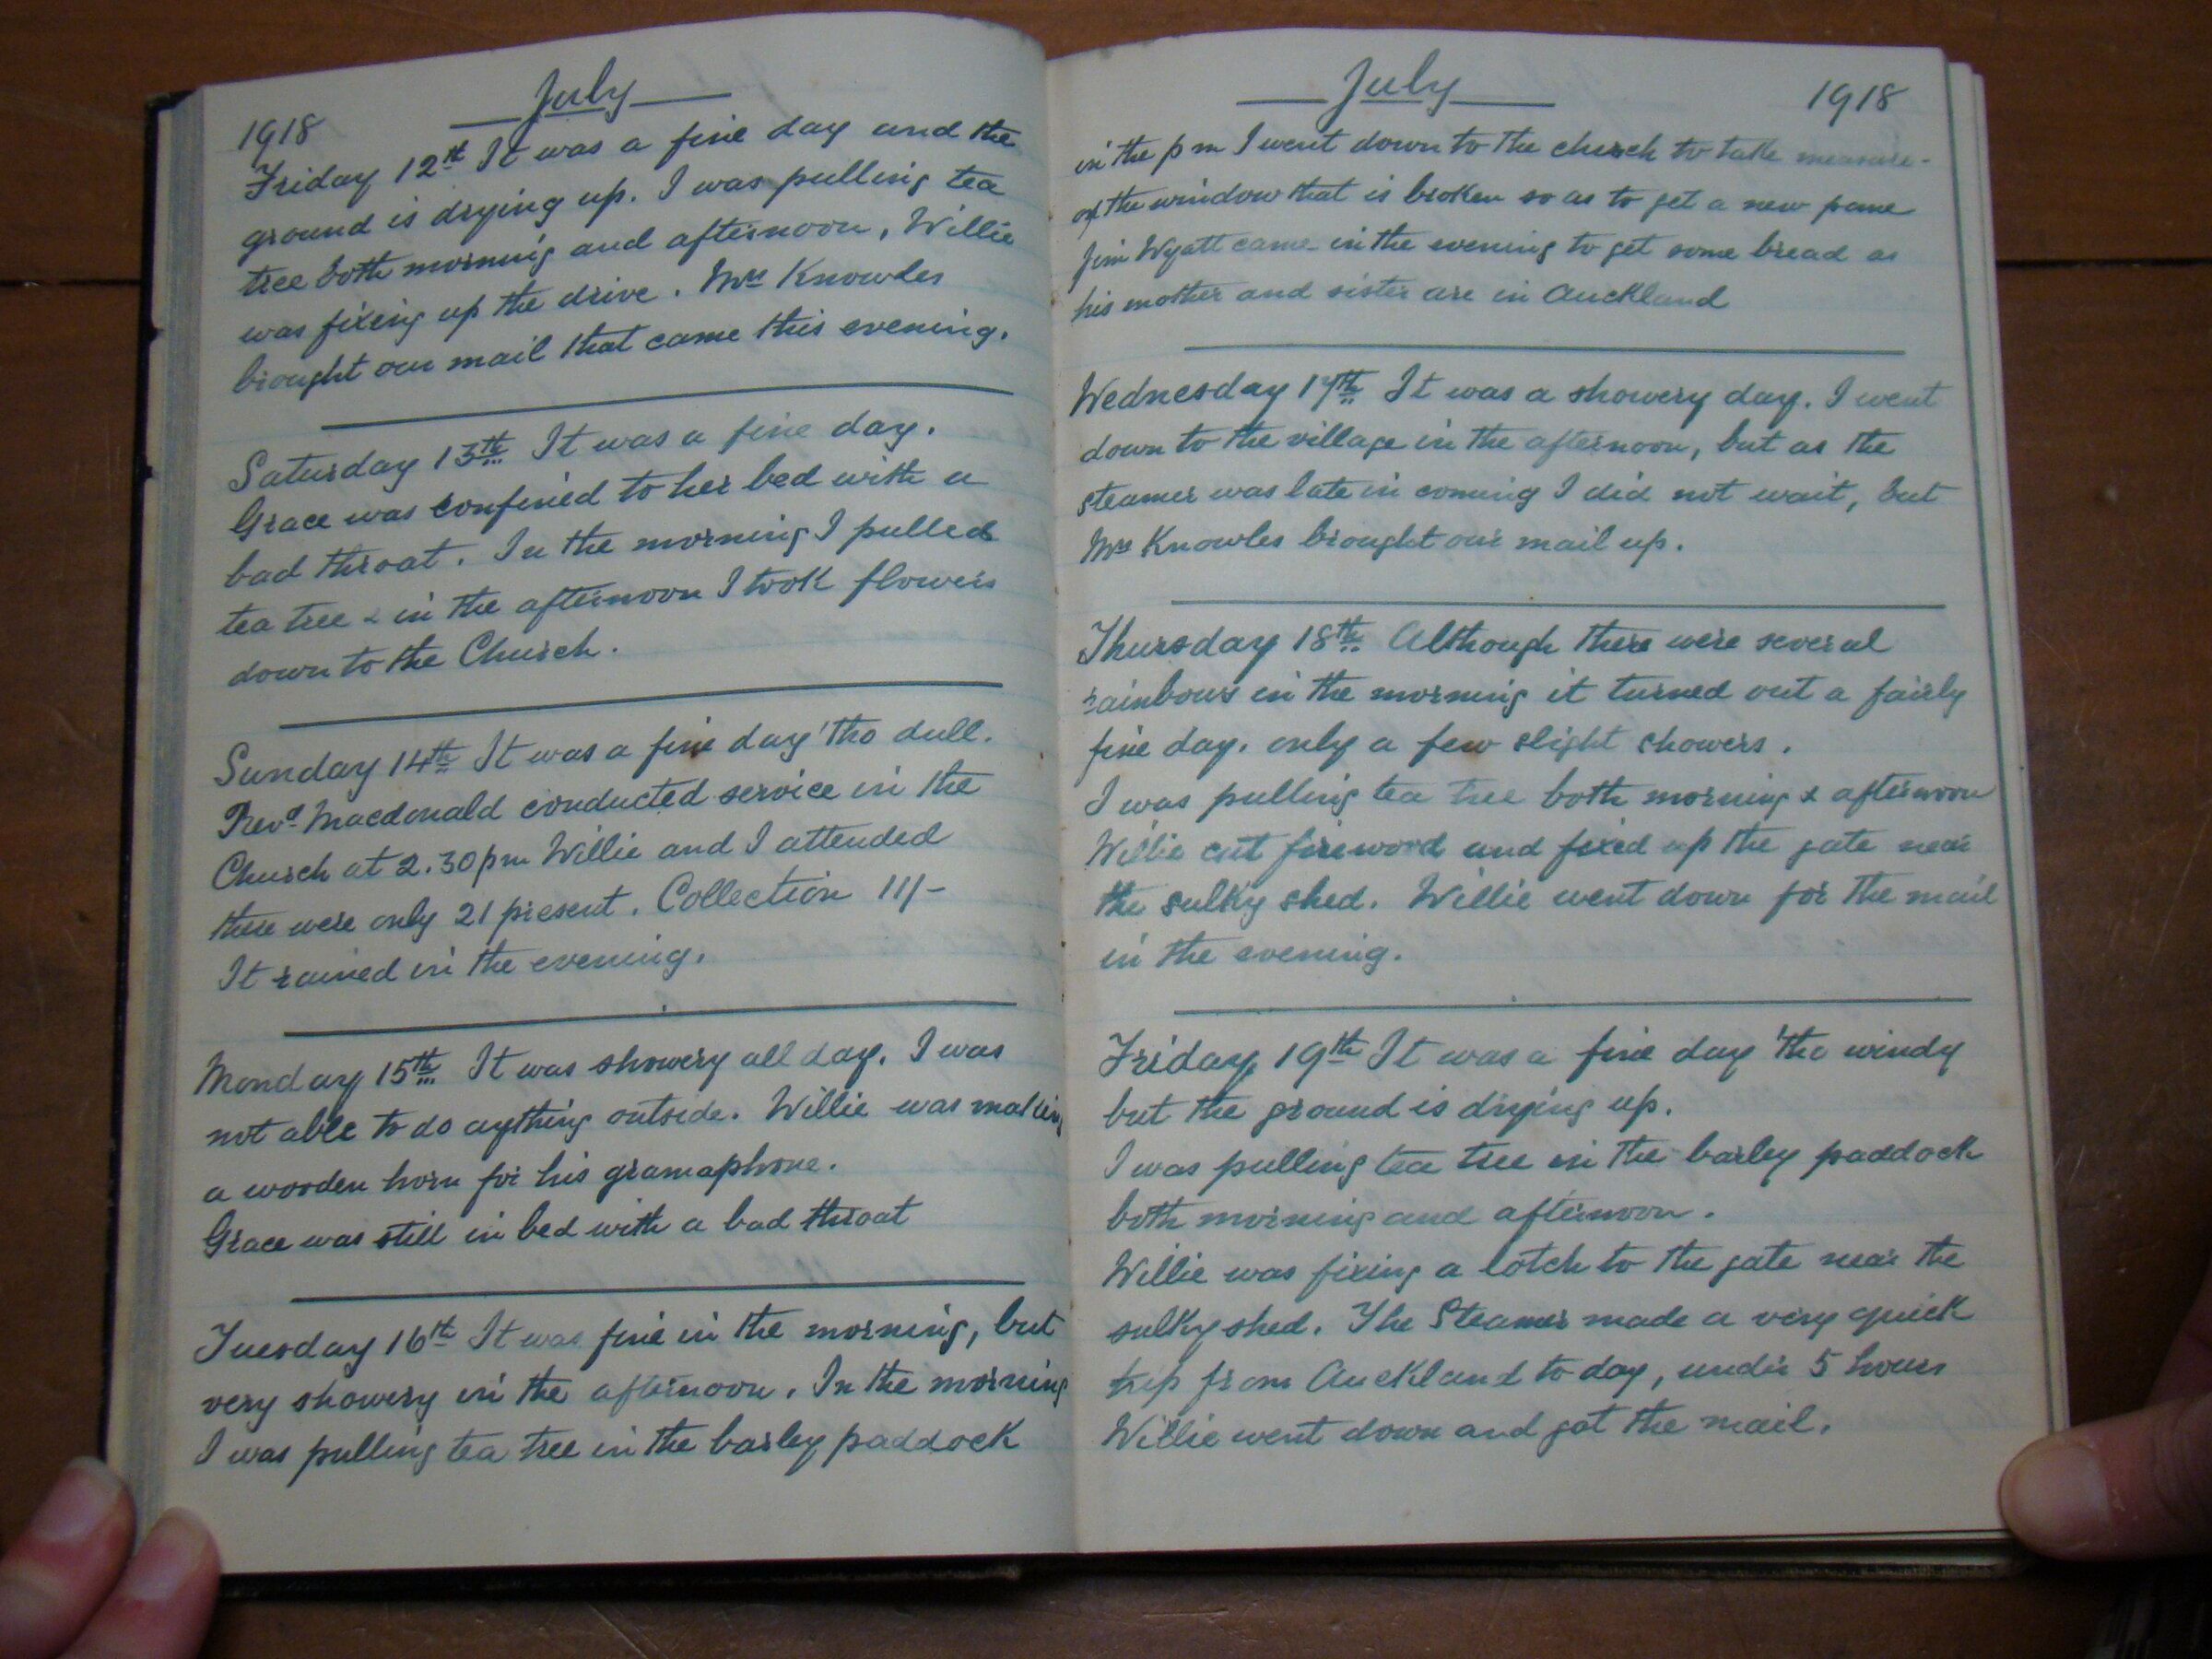 July
1918
Friday 12th It was a fine day and the
ground is drying up. I was pulling tea
tree both morning and afternoon, Willie
was fixing up the drive. Mrs Knowles
brought our mail that came this evening.
Saturday 13th It was a fine day.
Grace was confined to her bed with a
bad throat. In the morning I pulled
tea tree & in the afternoon I took flowers
down to the Church.
Sunday 14th It was a fine day 'tho dull.
Revd Macdonald conducted service in the
Church at 2.30 pm Willie and I attended
there were only 21 present. Collection 11/-
It rained in the evening.
Monday 15th It was showery all day. I was
not able to do aything outside. Willie was making
a wooden horn for his gramaphone.
Grace was still in bed with a bad throat
Tuesday 16th It was fine in the morning, but
very showery in the afternoon. In the morning
I was pulling tea tree in the barley paddock
July 1918
in the pm I went down to the church to take measure-
of the window that is broken so as to get a new pane
Jim Wyatt came in the evening to get some bread as
his mother and sister are in Auckland
Wednesday 17th It was a showery day. I went
down to the village in the afternoon, but as the
steamer was late in coming I did not wait, but
Mrs Knowles brought our mail up.
Thursday 18th Although there were several
rainbows in the morning it turned out a fairly
fine day. only a few slight showers.
I was pulling tea tree both morning & afternoon
Willie cut firewood and fixed up the gate near
the sulky shed. Willie went down for the mail
in the evening.
Friday 19th It was a fine day 'tho windy
but the ground is drying up.
I was pulling tea tree in the barley paddock
both morning and afternoon.
Willie was fixing a latch to the gate near the
sulky shed. The Steamer made a very quick
trip from Auckland to day, under 5 hours
Willie went down and got the mail.